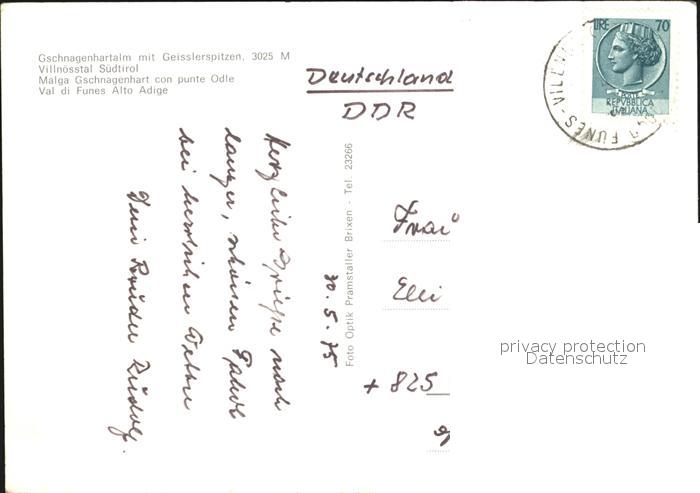 Gschnagenhartalm mit Geisslerspitzen, 3025 M
Villnösstal Südtirol
Malga Gschnagenhart con punte Odle
Val di Funes Alto Adige
Deutschland
DDR
LIRE 70
POSTE
REPVBBLICA
ITALIANA
FUNES - VILLN
Foto Optik Pramstaller Brixen - Tel. 23266
30.5.75
Herzliche Grüße nach
langer, schönen Fahrt
bei herrlichen Wetter
Dein Bruder Rudolf.
Frau
Elli
+ 825
privacy protection
Datenschutz